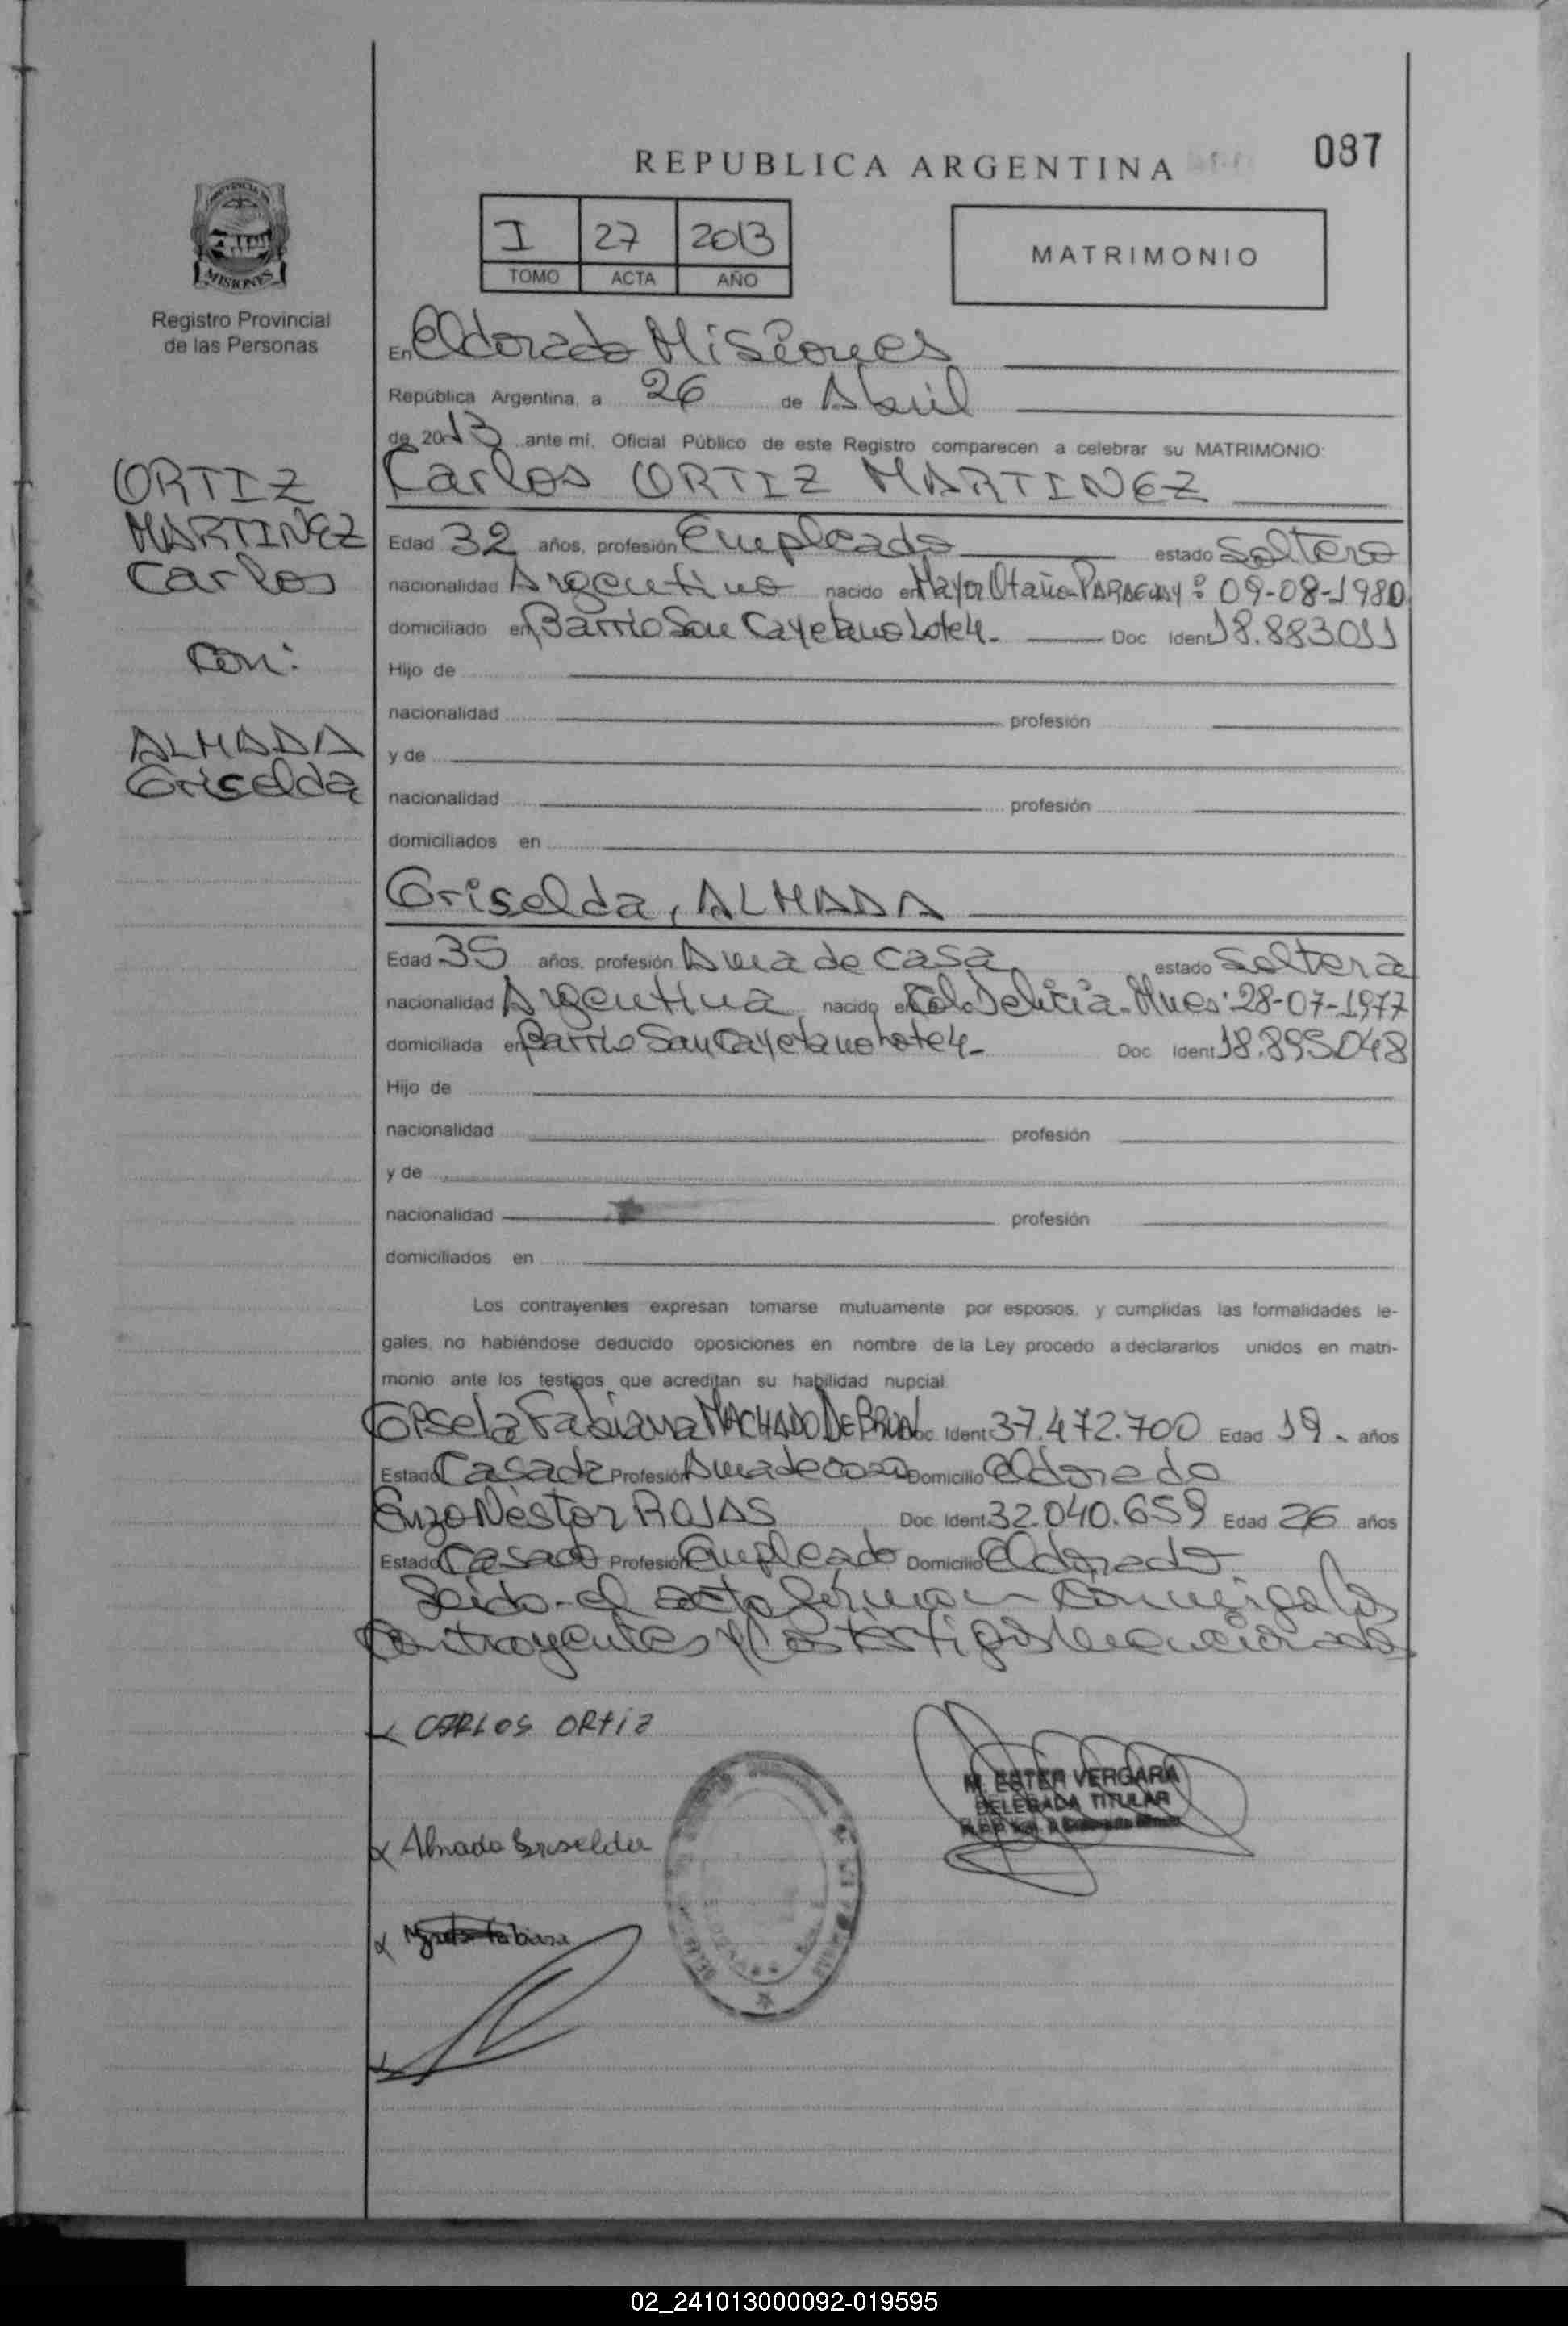 REPUBLICA ARGENTINA
087
I 27 2013
TOMO ACTA AÑO
MATRIMONIO
MISIONES
Registro Provincial
de las Personas
ORTIZ
MARTINEZ
Carlos
Con:
ALMADA
Griselda
En Eldorado Misiones
República Argentina, a 26 de Abril
de 2013 ante mí, Oficial Público de este Registro comparecen a celebrar su MATRIMONIO:
Carlos ORTIZ MARTINEZ
Edad 32 años, profesión Empleado estado Soltero
nacionalidad Argentino nacido en Mayor Otaño-PARAGUAY: 09-08-1980
domiciliado en Barrio San Cayetano Lote 4.- Doc Ident 18.883011
Hijo de
nacionalidad profesión
y de
nacionalidad profesión
domiciliados en
Griselda, ALMADA
Edad 35 años, profesión Ama de casa estado Soltera
nacionalidad Argentina nacido en Col. Delicia-Mnes: 28-07-1977
domiciliada en Barrio San Cayetano Lote 4- Doc Ident 18.895.048
Hijo de
nacionalidad profesión
y de
nacionalidad profesión
domiciliados en
Los contrayentes expresan tomarse mutuamente por esposos, y cumplidas las formalidades le-
gales, no habiéndose deducido oposiciones en nombre de la Ley procedo a declararlos unidos en matri-
monio ante los testigos que acreditan su habilidad nupcial
Fabiana MACHADO De BRUN Doc Ident 37.472.700 Edad 19.- años
Estado Casada Profesión Ama de casa Domicilio Eldorado
Enzo Néstor ROJAS Doc. Ident 32.040.659 Edad 26 años
Estado Casado Profesión Empleado Domicilio Eldorado
Leido-el acto firman conmigo los
contrayentes y los testigos mencionados
x CARLOS ORtiz
x Almada Griselda
x Fabiana
M. ESTER VERGARA
DELEGADA TITULAR
02_241013000092-019595